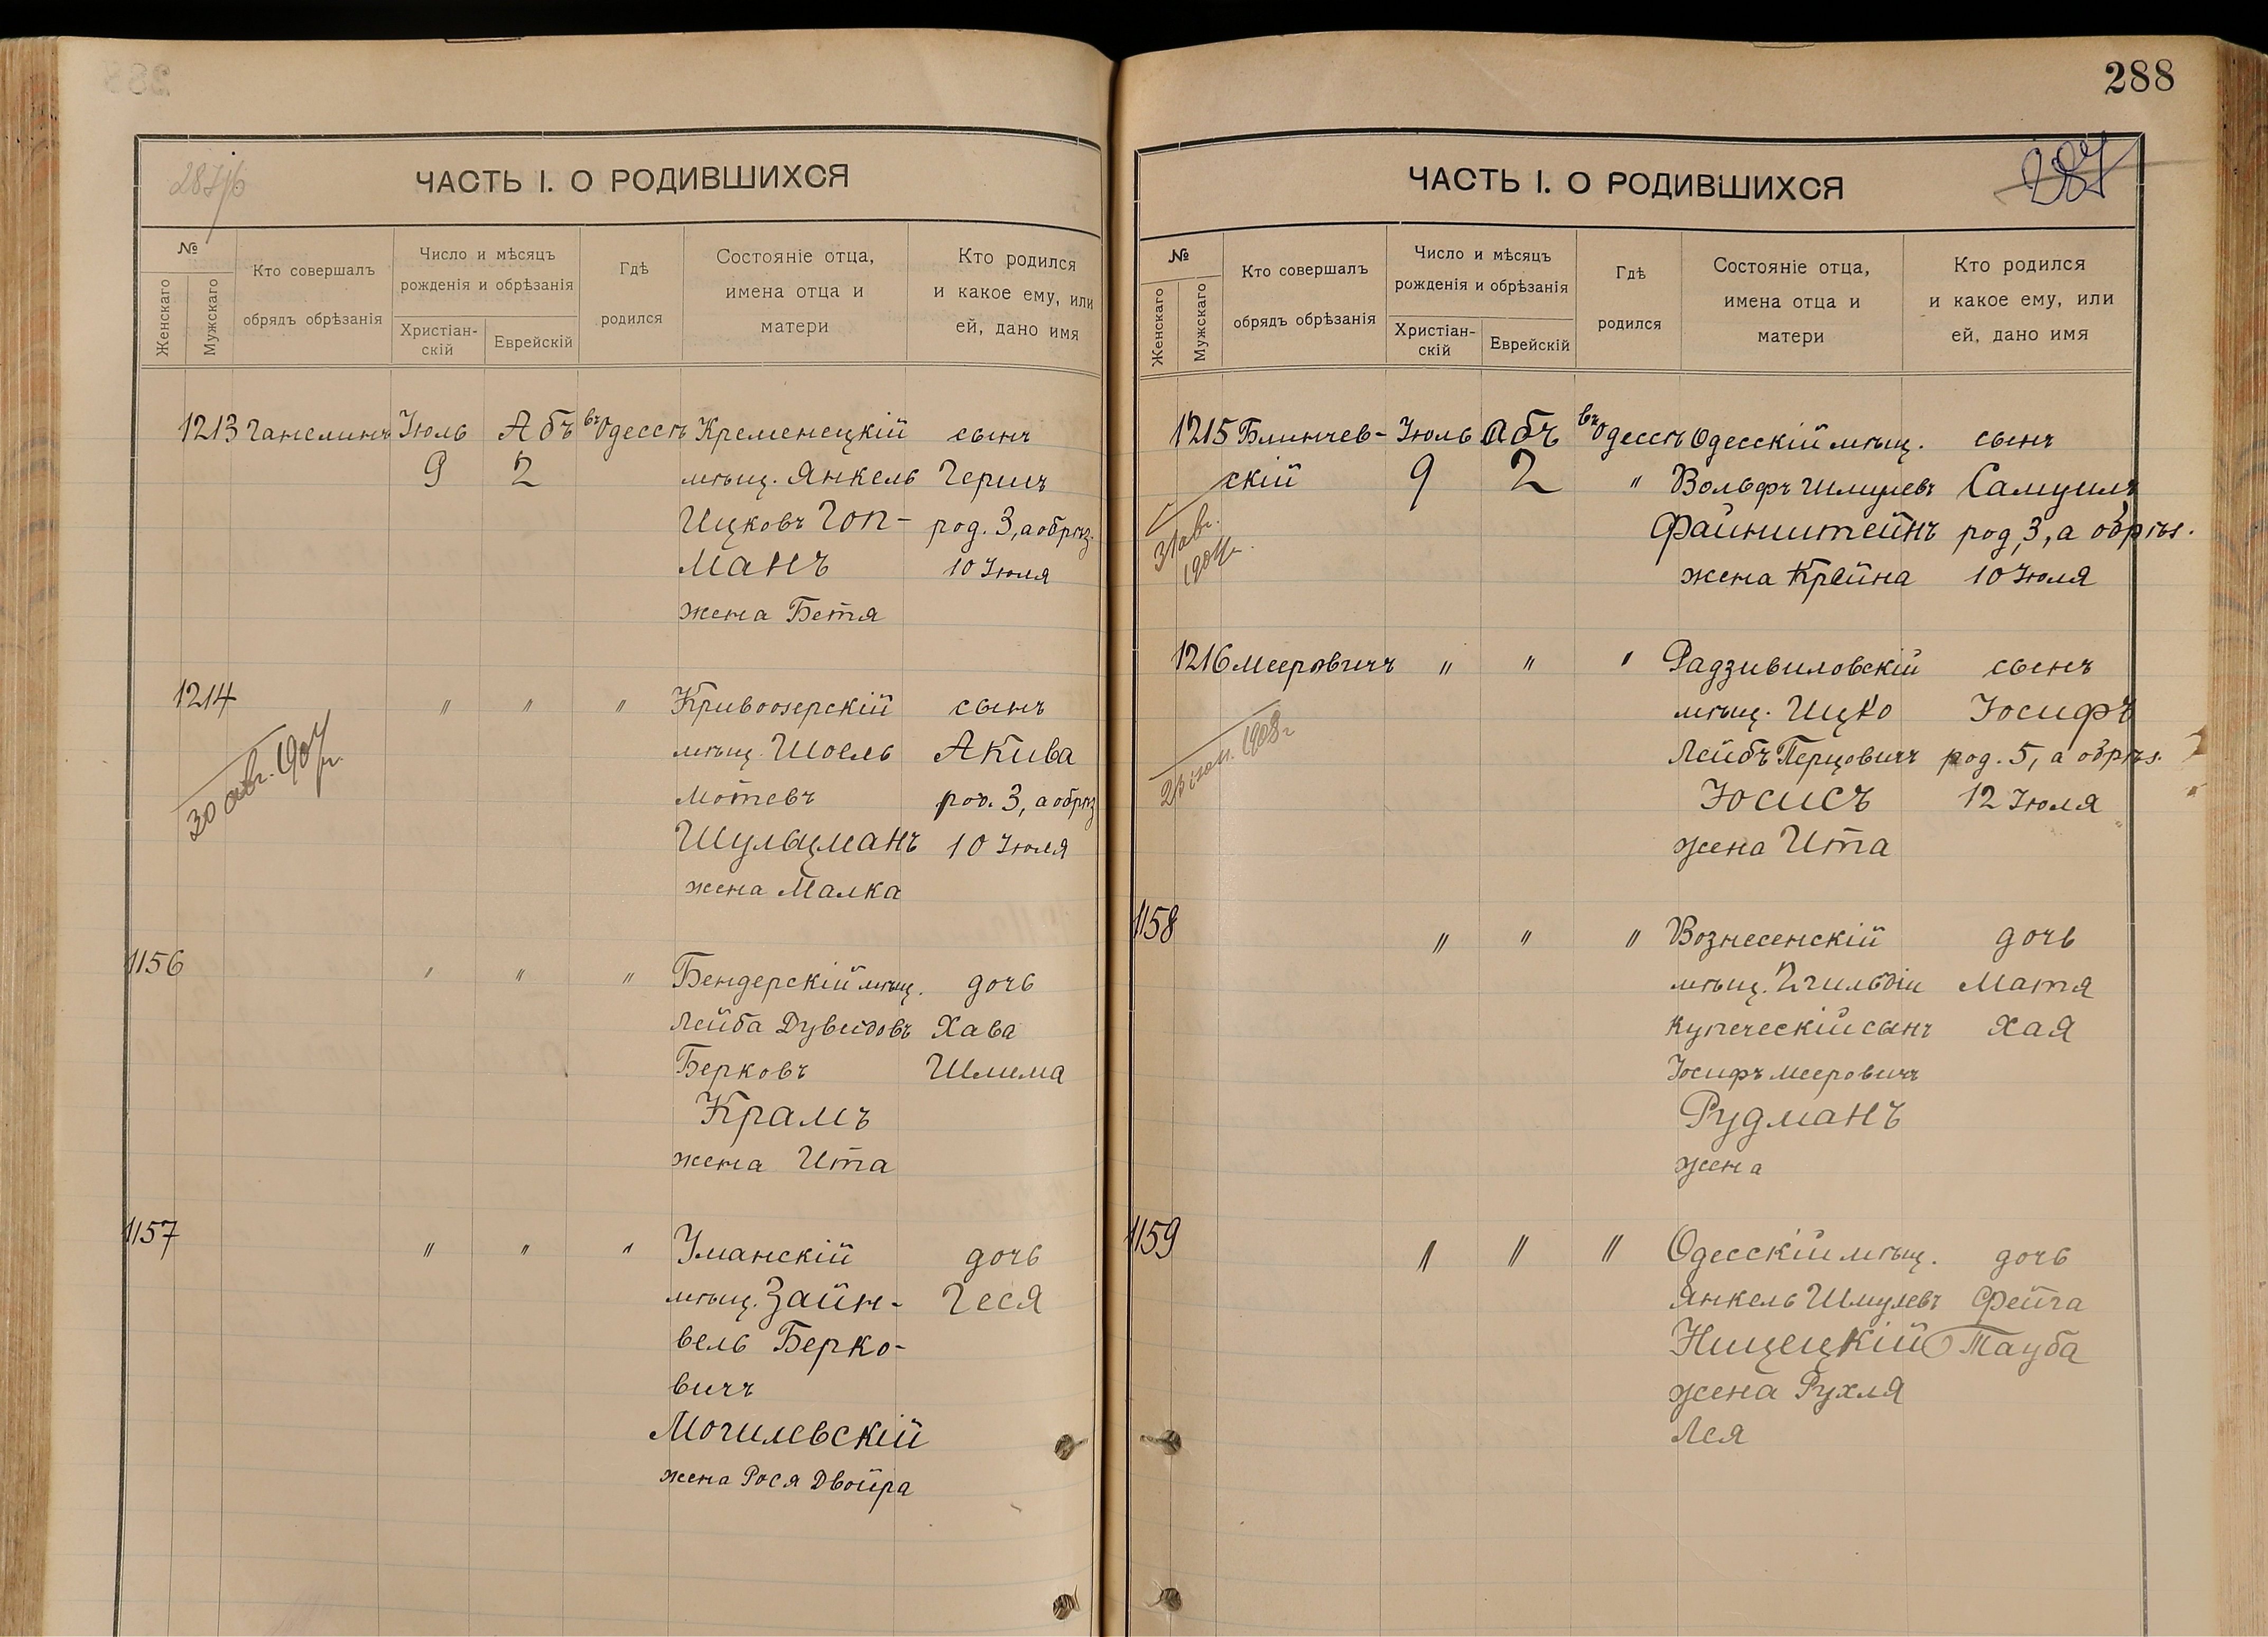 288
ЧАСТЬ I. О РОДИВШИХСЯ
№
Женскаго
Мужскаго
Кто совершалъ
обрядъ обрѣзанія
Число и мѣсяцъ
рожденія и обрѣзанія
Христіан-
скій
Еврейскій
Гдѣ
родился
Состояніе отца,
имена отца и
матери
Кто родился
и какое ему, или
ей, дано имя
1213 Ганелинъ Іюль Абъ въ Одессѣ Кременецкій сынъ
9 2 мѣщ. Янкель Гершъ
Ицковъ Гоп- род. 3, а обрѣз.
манъ 10 Іюля
жена Бетя
1214 " " " Кривоозерскій сынъ
мѣщ. Шоель Акива
30 авг. 1907 г.
Мотевъ род. 3, а обрѣз
Шульцманъ 10 Іюля
жена Малка
1156 " " " Бендерскій мѣщ. дочь
Лейба Дувидовъ Хава
Берковъ Шлима
Крамъ
жена Ита
1157 " " " Уманскій дочь
мѣщ. Зайн- Геся
вель Берко-
вичъ
Могилевскій
жена Рося Двойра
ЧАСТЬ I. О РОДИВШИХСЯ
287
№
Женскаго
Мужскаго
Кто совершалъ
обрядъ обрѣзанія
Число и мѣсяцъ
рожденія и обрѣзанія
Христіан-
скій
Еврейскій
Гдѣ
родился
Состояніе отца,
имена отца и
матери
Кто родился
и какое ему, или
ей, дано имя
1215 Блинчев- Іюль Абъ въ Одессѣ Одесскій мѣщ. сынъ
скій 9 2 " Вольфъ Шмулевъ Самуилъ
31 авг.
1907 г.
Файнштейнъ род. 3, а обрѣз.
жена Крейна 10 Іюля
1216 Мееровичъ " " " Радзивиловскій сынъ
мѣщ. Ицко Іосифъ
1908 г
Лейбъ Перцовичъ род. 5, а обрѣз.
Юсисъ 12 Іюля
жена Ита
1158 " " " Вознесенскій дочь
мѣщ. Матя
купеческій сынъ Хая
Іосифъ Мееровичъ
Рудманъ
жена
1159 " " " Одесскій мѣщ. дочь
Янкель Шмулевъ Фейга
Ницецкій Тауба
жена Рухля
Лея